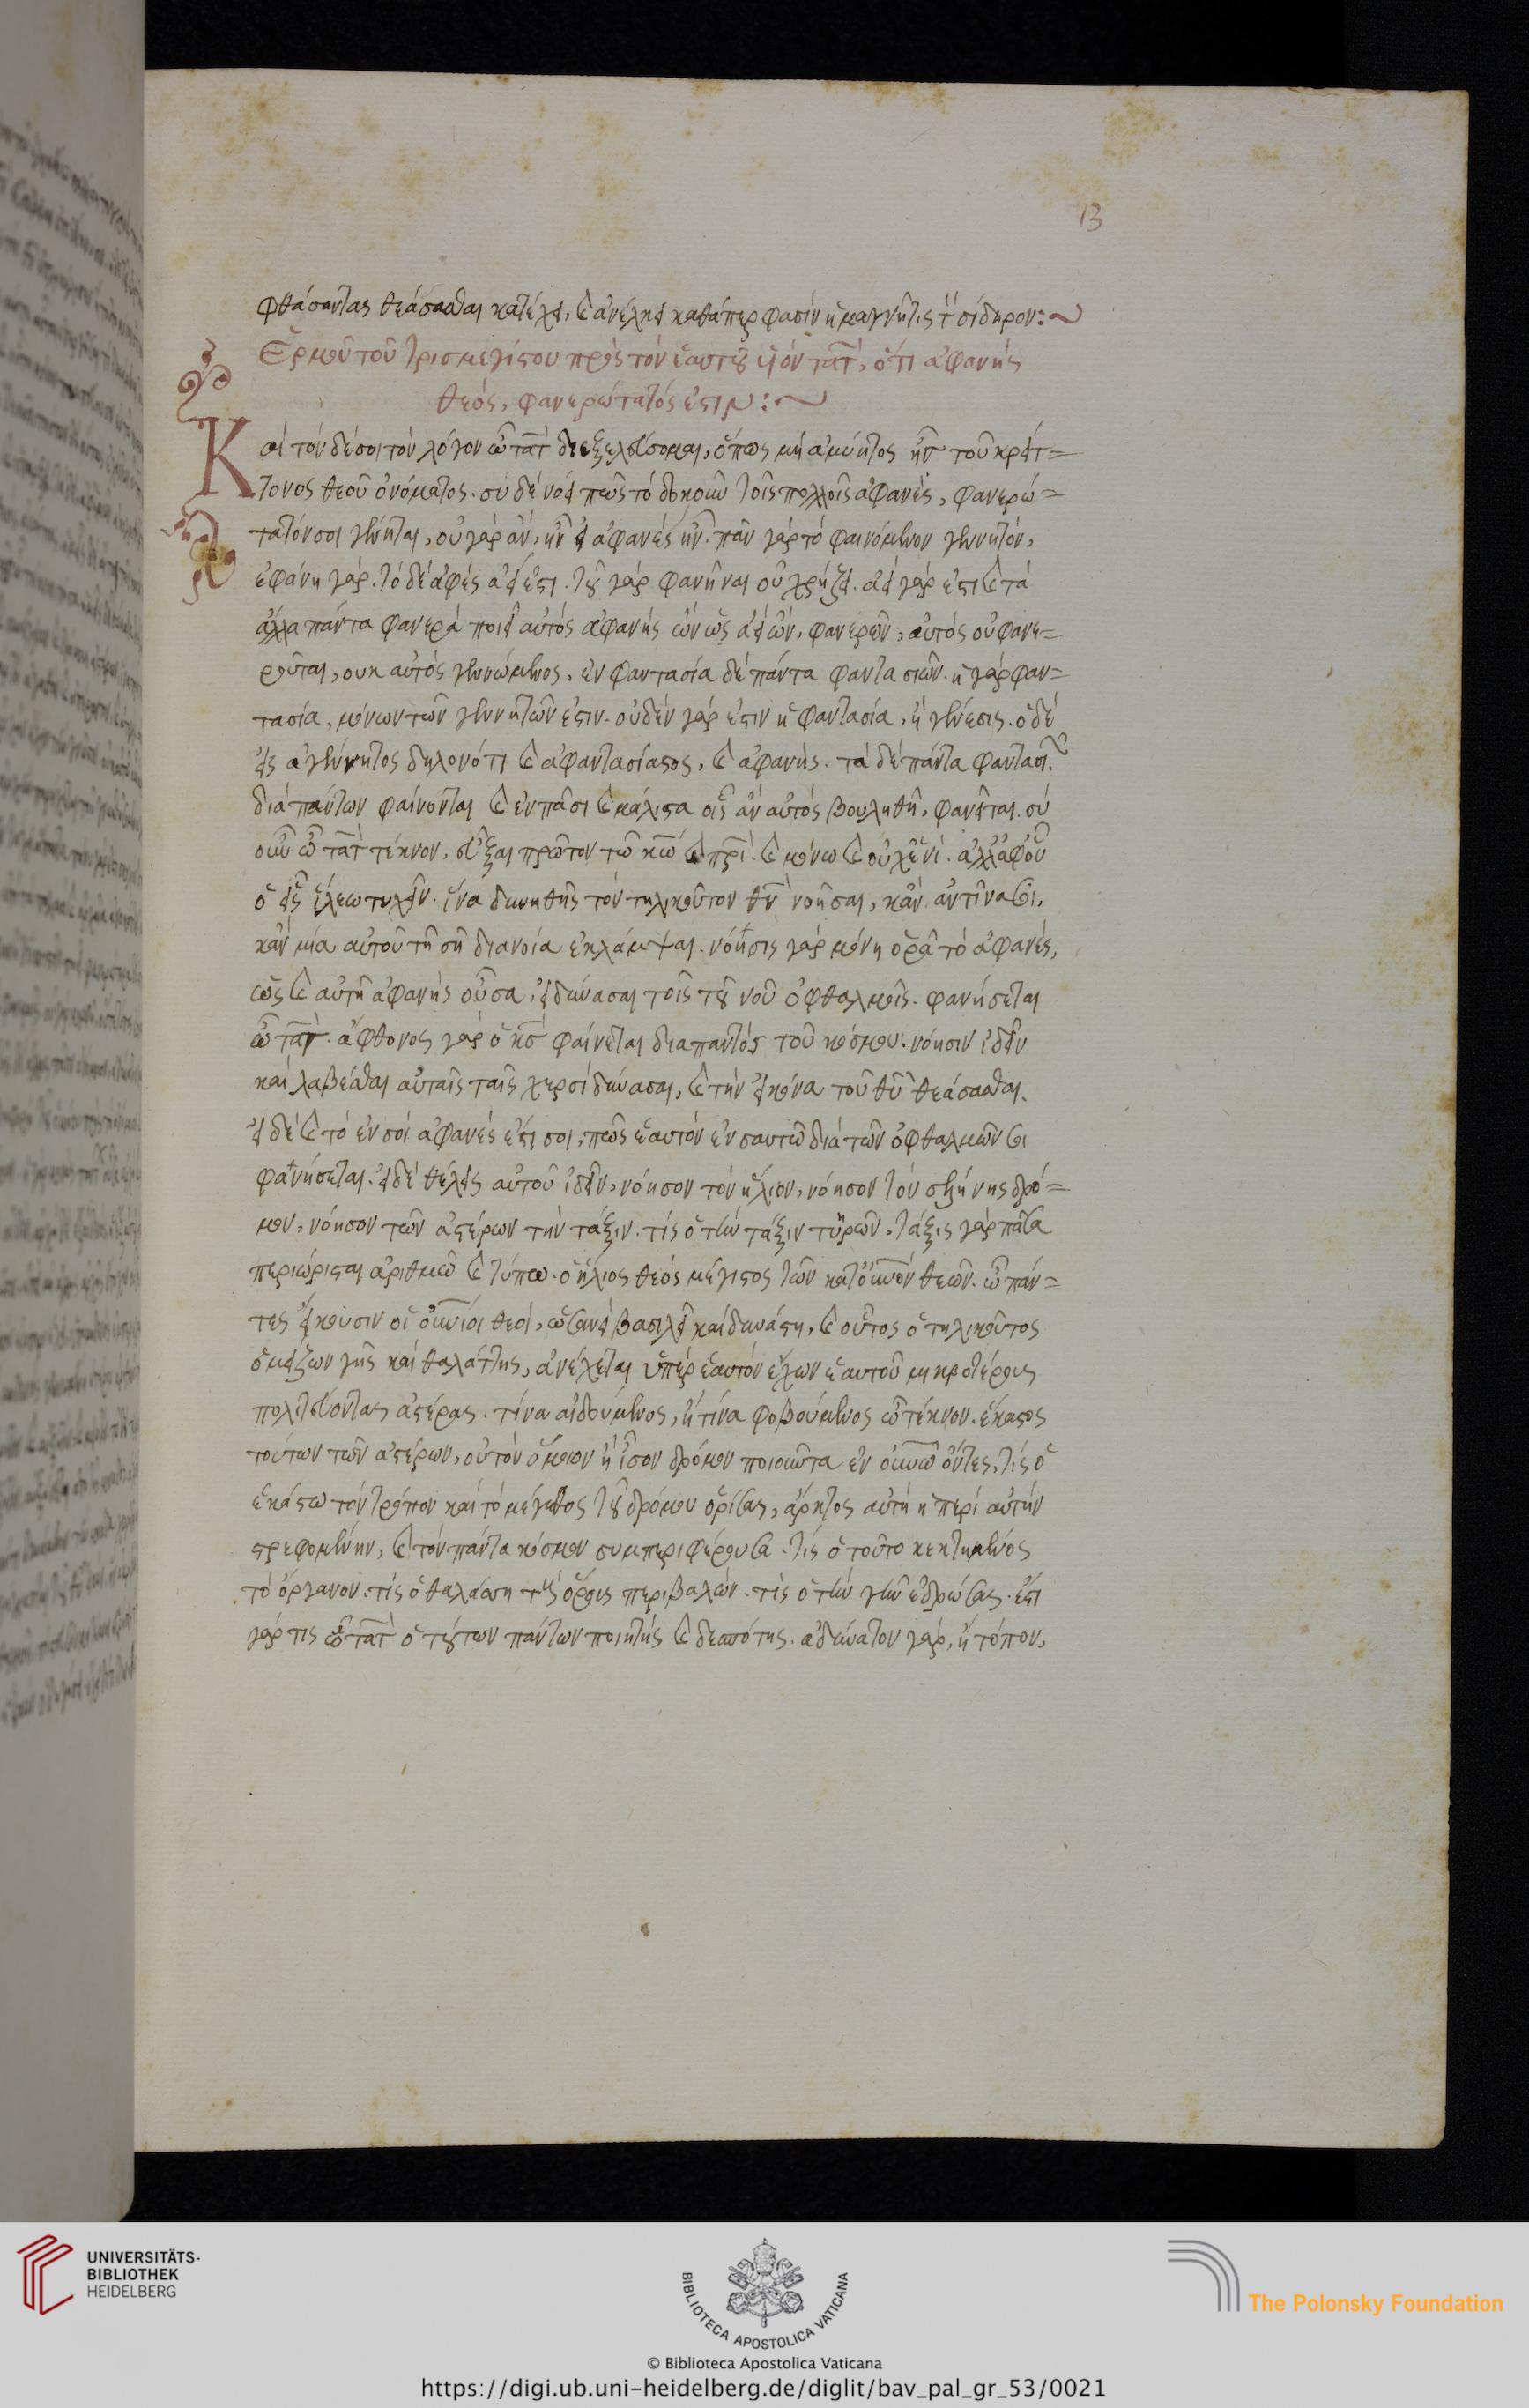 13
φθάσαντας θεάσασθαι κατέχει, καὶ ἀνέλκει καθάπερ φασὶν ἡ μαγνῆτις τὸν σίδηρον:~
Ἑρμοῦ τοῦ τρισμεγίστου πρὸς τὸν ἑαυτοῦ υἱὸν τὰτ, ὅτι ἀφανὴς
θεὸς, φανερώτατός ἐστιν:~
Καὶ τόν δέ σοι τὸν λόγον ὦ τὰτ διεξελεύσομαι, ὅπως μὴ ἀμύητος ᾖς τοῦ κρείτ=
τονος θεοῦ ὀνόματος. σὺ δὲ νόει πῶς τὸ δοκοῦν τοῖς πολλοῖς ἀφανὲς, φανερώ=
τατόν σοι γενήται, οὐ γὰρ ἂν, ἦν εἰ ἀφανὲς ἦν. πᾶν γὰρ τὸ φαινόμενον γεννητόν,
ἐφάνη γάρ. τὸ δὲ ἀφὲς ἀεί ἐστι. τοῦ γὰρ φανῆναι οὐ χρήζει. ἀεὶ γάρ ἐστι καὶ τὰ
ἄλλα πάντα φανερὰ ποιεῖ αὐτὸς ἀφανὴς ὢν ὡς ἀεὶ ὢν, φανερῶν, αὐτὸς οὐ φανε=
ροῦται, ουκ αὐτὸς γεννώμενος, ἐν φαντασία δὲ πάντα φαντασιῶν. ἡ γὰρ φαν=
τασία, μόνων τῶν γεννητῶν ἐστιν. οὐδὲν γάρ ἐστιν ἡ φαντασία, ἢ γένεσις. ὁ δὲ
εἷς ἀγέννητος δηλονότι καὶ ἀφαντασίαστος, καὶ ἀφανής. τὰ δὲ πάντα φαντασι.
διὰ πάντων φαίνονται καὶ ἐν πᾶσι καὶ μάλιστα οἷς ἂν αὐτὸς βουληθῆ, φανεῖται. σὺ
οὖν ὦ τὰτ τέκνον, εὖξαι πρῶτον τῶ κῶ καὶ πρὶ. καὶ μόνω καὶ οὐχ ἑνὶ. ἀλλ' ἀφ' οὗ
ὁ εἷς ἵλεω τυχεῖν. ἵνα δυνηθῆς τὸν τηλικοῦτον θν νοῆσαι, κἂν ἀντῖνα σοι,
κἂν μία αὐτοῦ τῆ σῆ διανοία ἐκλάμψαι. νόησις γὰρ μόνη ὁρᾶ τὸ ἀφανές,
ὡς καὶ αὐτὴ ἀφανὴς οὖσα, εἰ δύνασαι τοῖς τοῦ νοῦ ὀφθαλμοῖς. φανήσεται
ὦ τὰτ. ἄφθονος γὰρ ὁ κς φαίνεται διαπαντὸς τοῦ κόσμου. νόησιν ἰδεῖν
καὶ λαβέσθαι αὐταῖς ταῖς χερσὶ δύνασαι, καὶ τὴν εἰκόνα τοῦ θῦ θεάσασθαι.
εἰ δὲ καὶ τὸ ἐν σοὶ ἀφανές ἐστί σοι, πῶς ἑαυτὸν ἐν σαυτῶ διὰ τῶν ὀφθαλμῶν σοι
φανήσεται. εἰ δὲ θέλεις αὐτοῦ ἰδεῖν, νόησον τὸν ἥλιον, νόησον τὸν σελήνης δρό=
μον, νόησον τῶν ἀστέρων τὴν τάξιν. τίς ὁ τὴν τάξιν τηρῶν. τάξις γὰρ πᾶσα
περιώρισται ἀριθμῶ καὶ τόπω. ὁ ἥλιος θεὸς μέγιστος τῶν κατ' οὐνὸν θεῶν. ὧ πάν=
τες εἴκουσιν οἱ οὐνιοι θεοὶ, ὡσανεὶ βασιλεῖ καὶ δυνάστη, καὶ οὗτος ὁ τηλικοῦτος
ὁ μείζων γῆς καὶ θαλάττης, ἀνέχεται ὑπὲρ ἑαυτὸν ἔχων ἑαυτοῦ μικροτέρους
πολιτεύοντας ἀστέρας. τίνα αἰδούμενος, ἢ τίνα φοβούμενος ὦ τέκνον. ἕκαστος
τούτων τῶν ἀστέρων, οὐ τὸν ὅμοιον ἢ ἶσον δρόμον ποιοῦντα ἐν οὐνῶ ὄντες, τίς ὁ
ἑκάστω τὸν τρόπον καὶ τὸ μέγεθος τοῦ δρόμου ὁρίσας, ἄρκτος αὐτὴ ἡ περὶ αὐτὴν
στρεφομένην, καὶ τὸν πάντα κόσμον συμπεριφέρουσα. τίς ὁ τοῦτο κεκτημένος
τὸ ὄργανον. τίς ὁ θαλάσση τοὺς ὅρους περιβαλών. τίς ὁ τὴν γῆν ἑδράσας. ἔστι
γάρ τις ὦ τὰτ ὁ τούτων πάντων ποιητὴς καὶ δεσπότης. ἀδύνατον γὰρ, ἢ τόπον,
UNIVERSITÄTS-
BIBLIOTHEK
HEIDELBERG
BIBLIOTECA APOSTOLICA VATICANA
The Polonsky Foundation
© Biblioteca Apostolica Vaticana
https://digi.ub.uni-heidelberg.de/diglit/bav_pal_gr_53/0021